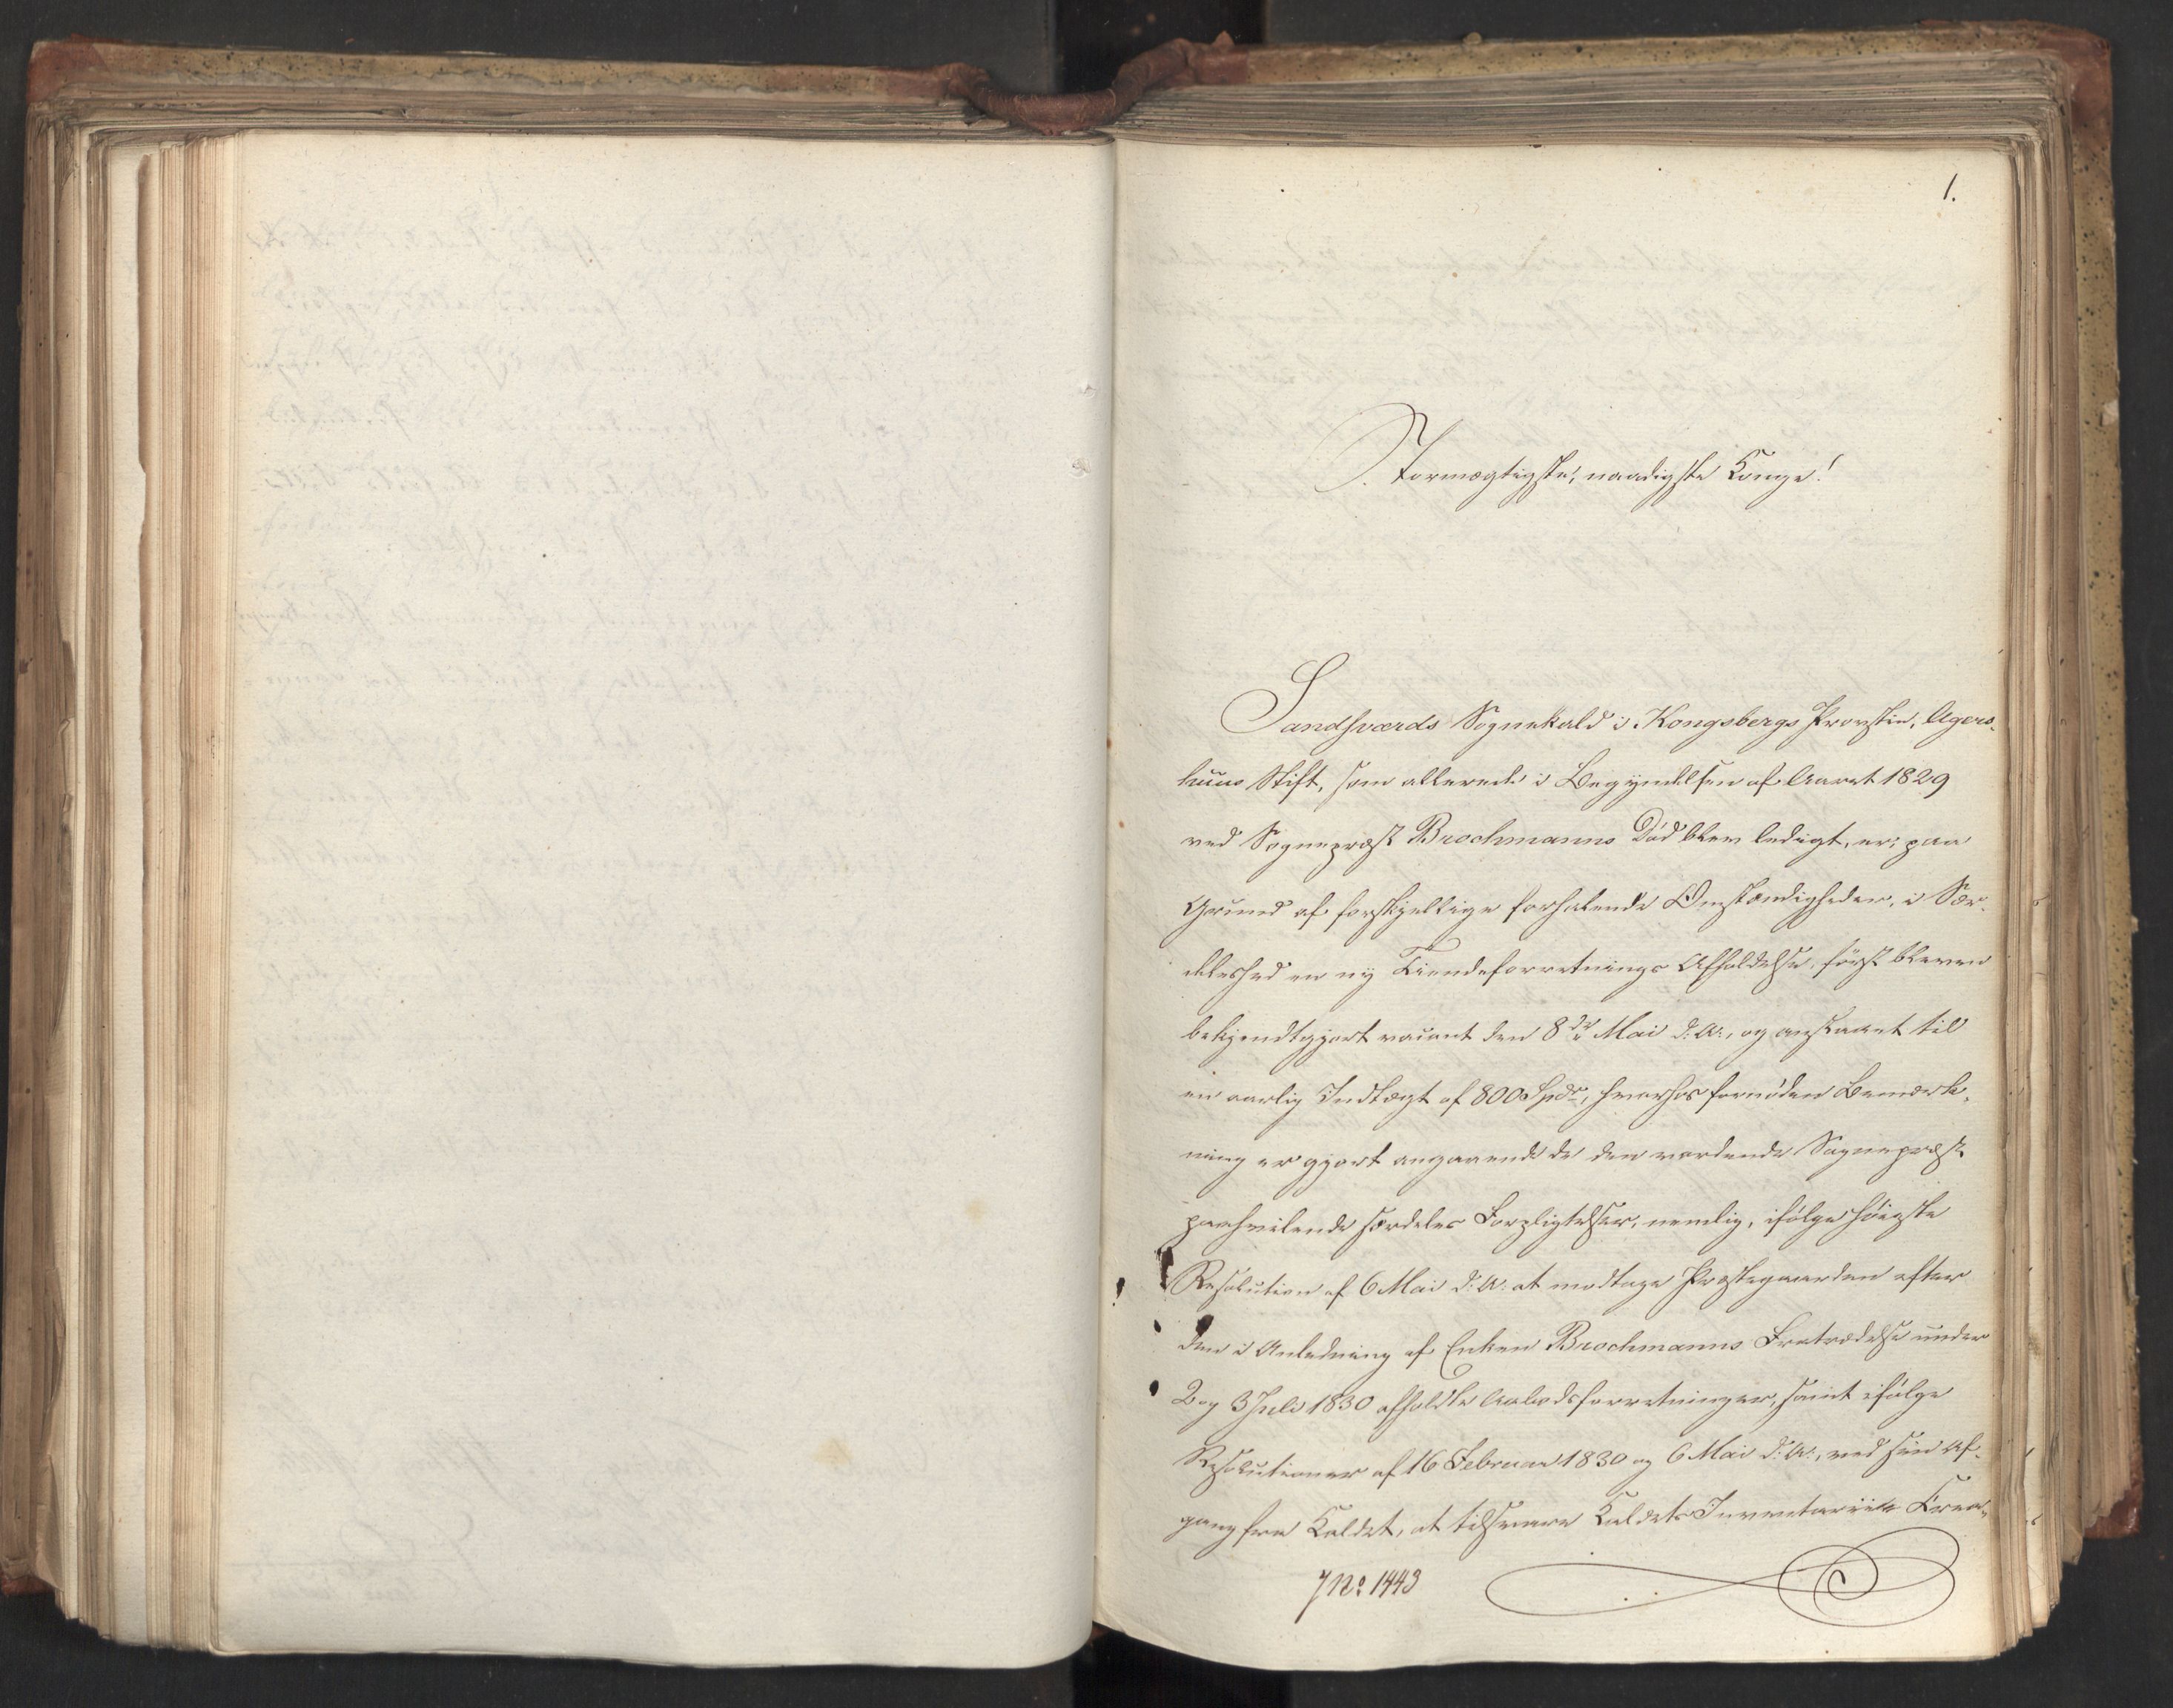 1.
Stormægtigste, naadigste Konge!
Sandsværds Sognekald i Kongsbergs Provstie, Agers-
huus Stift, som allerede i Begyndelsen af Aaret 1829
ved Sognepræst Brochmanns Död blev ledigt, er, paa
Grund af forskjellige forhalende Omstændigheder, i Sær-
deleshed en ny Tiendeforretnings Afholdelse, först bleven
bekjendtgjort vacant den 8de Mai d: A:, og anslaaet til
en aarlig Indtægt af 800 Spdr, hvorhos fornöden Bemærk-
ning er gjort angaaende de den vordende Sognepræst
paahvilende særdeles Forpligtelser, nemlig, ifölge höieste
Resolution af 6 Mai d: A: at modtage Præstegaarden efter
den i Anledning af Enken Brochmanns Fratrædelse under
2 og 3 Juli 1830 afholdte Aabodsforretninger, samt ifölge
Resolutioner af 16 Februar 1830 og 6 Mai d: A:, ved sin Af-
gang fra Kaldet, at tilsvare Kaldets Inventarii
J No 1443